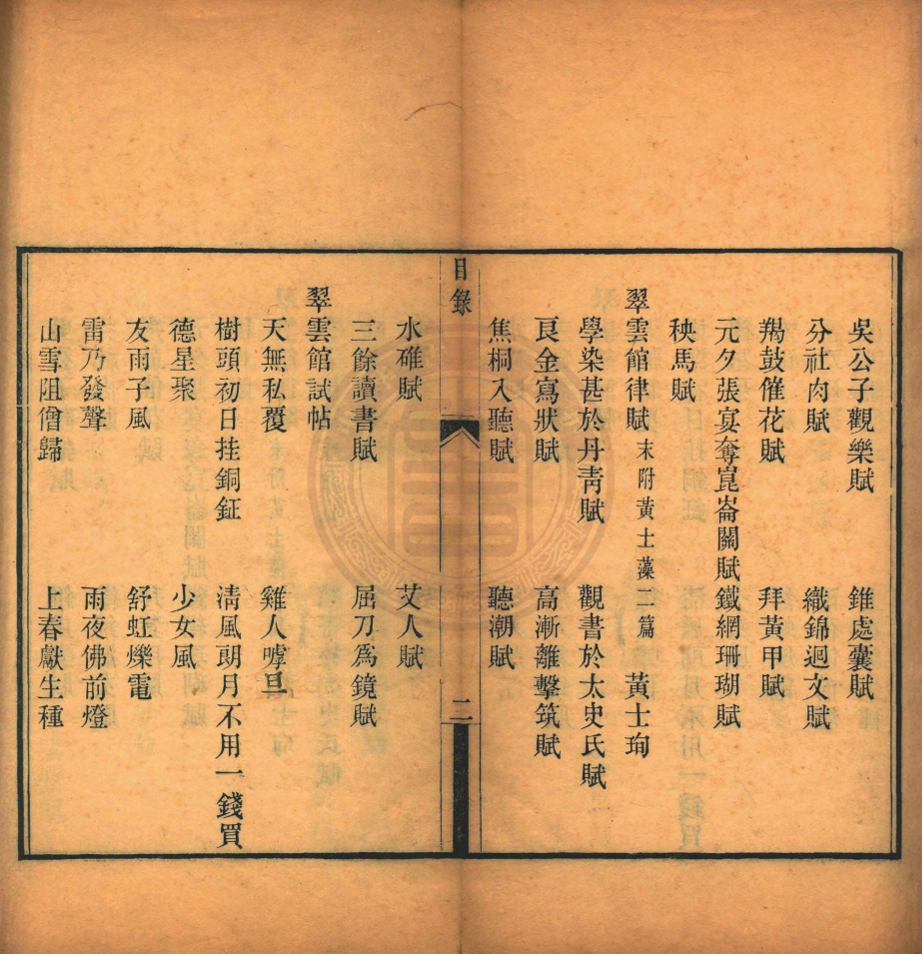 吳公子觀樂賦　錐處囊賦
分社肉賦　織錦迴文賦
羯鼓催花賦　拜黃甲賦
元夕張宴奪崑崙關賦　鐵網珊瑚賦
秧馬賦
翠雲館律賦　末附黃士藻二篇　黃士珣
學染甚於丹青賦　觀書於太史氏賦
良金寫狀賦　高漸離擊筑賦
焦桐入聽賦　聽潮賦
目錄　二
水碓賦　艾人賦
三餘讀書賦　屈刀爲鏡賦
翠雲館試帖
天無私覆　雞人嘑旦
樹頭初日挂銅鉦　清風朗月不用一錢買
德星聚　少女風
友雨子風　舒虹爍電
雷乃發聲　雨夜佛前燈
山雪阻僧歸　上春獻生種